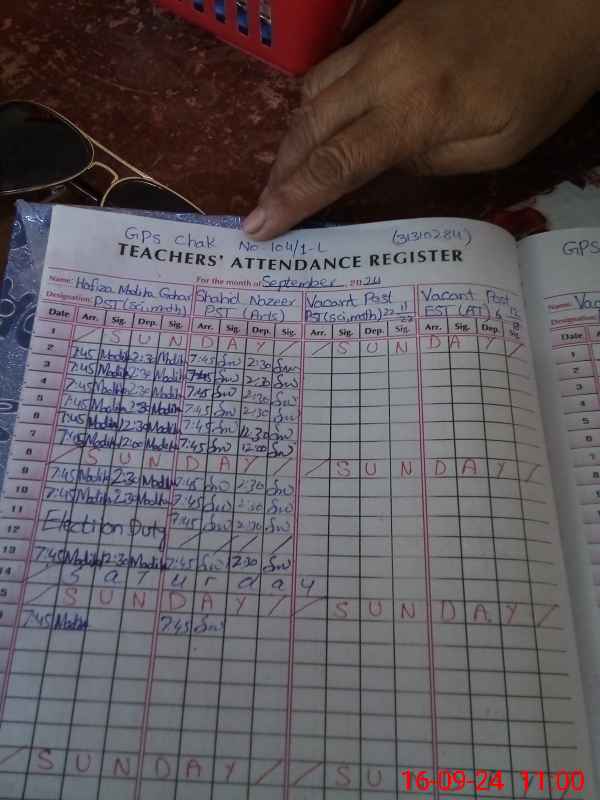 GPS Chak No. 104/1-L (31310284)
TEACHERS' ATTENDANCE REGISTER
Name: Hafiza Madiha Gohar For the month of September, 2024
Shahid Nazeer Vacant Post Vacant Post
Designation: PST (sci, math) PST (Arts) PST (sci, math) EST (AT)
Date Arr. Sig. Dep. Sig. Arr. Sig. Dep. Sig. Arr. Sig. Dep. Sig. Arr. Sig. Dep. Sig.
1 SUNDAY SUNDAY
2 7:45 Madiha 2:30 Madiha 7:45 2:30
3 7:45 Madiha 2:30 Madiha 7:45 2:30
4 7:45 Madiha 2:30 Madiha 7:45 2:30
5 7:45 Madiha 2:30 Madiha 7:45 2:30
6 7:45 Madiha 12:30 Madiha 7:45 12:30
7 7:45 Madiha 12:00 Madiha 7:45 12:00
8 SUNDAY SUNDAY
9 7:45 Madiha 2:30 Madiha 7:45 2:30
10 7:45 Madiha 2:30 Madiha 7:45 2:30
11 Election Duty 7:45 2:30
12
13 7:45 Madiha 12:30 Madiha 7:45 12:30
14 Saturday
SUNDAY SUNDAY
7:45 Madiha 7:45
SUNDAY SU
GPS
Name: Vac
Designation:
Date
1
2
3
4
5
6
7
8
9
10
11
12
13
16-09-24 11:00